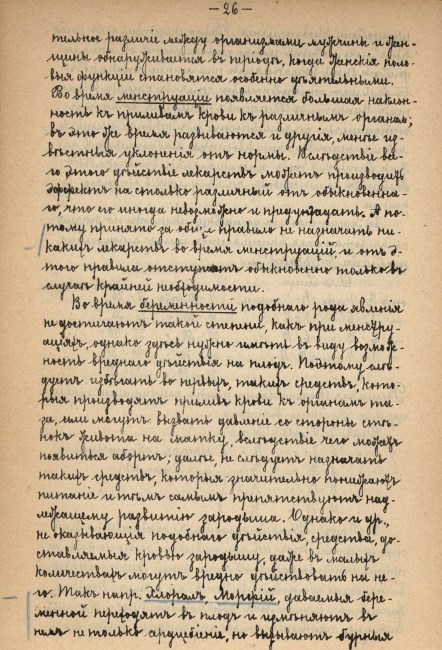 — 26 —
тельное различіе между организмами мужчины и жен-
щины обнаруживается въ періодъ, когда женскія поло-
выя функціи становятся особенно дѣятельными.
Во время менструаціи появляется большая наклон-
ность къ приливамъ крови къ различнымъ органамъ;
въ это же время развиваются и другія, менѣе из-
вѣстныя уклоненія отъ нормы. Вслѣдствіе все-
го этого дѣйствіе лекарствъ можетъ производить
эффектъ на столько различный отъ обыкновенна-
го, что его иногда невозможно и предугадать. А по-
тому принято за общее правило не назначать ни-
какихъ лекарствъ во время менструацій и отъ э-
того правила отступаютъ обыкновенно только въ
случаѣ крайней необходимости.
Во время беременности подобнаго рода явленія
не достигаютъ такой степени, какъ при менстру-
аціяхъ, однако здѣсь нужно имѣть въ виду возмож-
ность вреднаго дѣйствія на плодъ. Поэтому слѣ-
дуетъ избѣгать во первыхъ, такихъ средствъ, кото-
рыя производятъ приливъ крови къ органамъ та-
за, или могутъ вызвать давленіе со стороны стѣ-
нокъ живота на матку, вслѣдствіе чего можетъ
появиться абортъ; далѣе, не слѣдуетъ назначать
такихъ средствъ, которыя значительно понижаютъ
питаніе и тѣмъ самымъ препятствуютъ над-
лежащему развитію зародыша. Однако и др.,
не оказывающія подобнаго дѣйствія, средства, до-
ставляемыя кровью зародышу, даже въ малыхъ
количествахъ могутъ вредно дѣйствовать на не-
го. Такъ напр. Хлоралъ, Морфій, даваемыя бере-
менной переходятъ въ плодъ и измѣняютъ въ
немъ не только сердцебіеніе, но вызываютъ бурныя